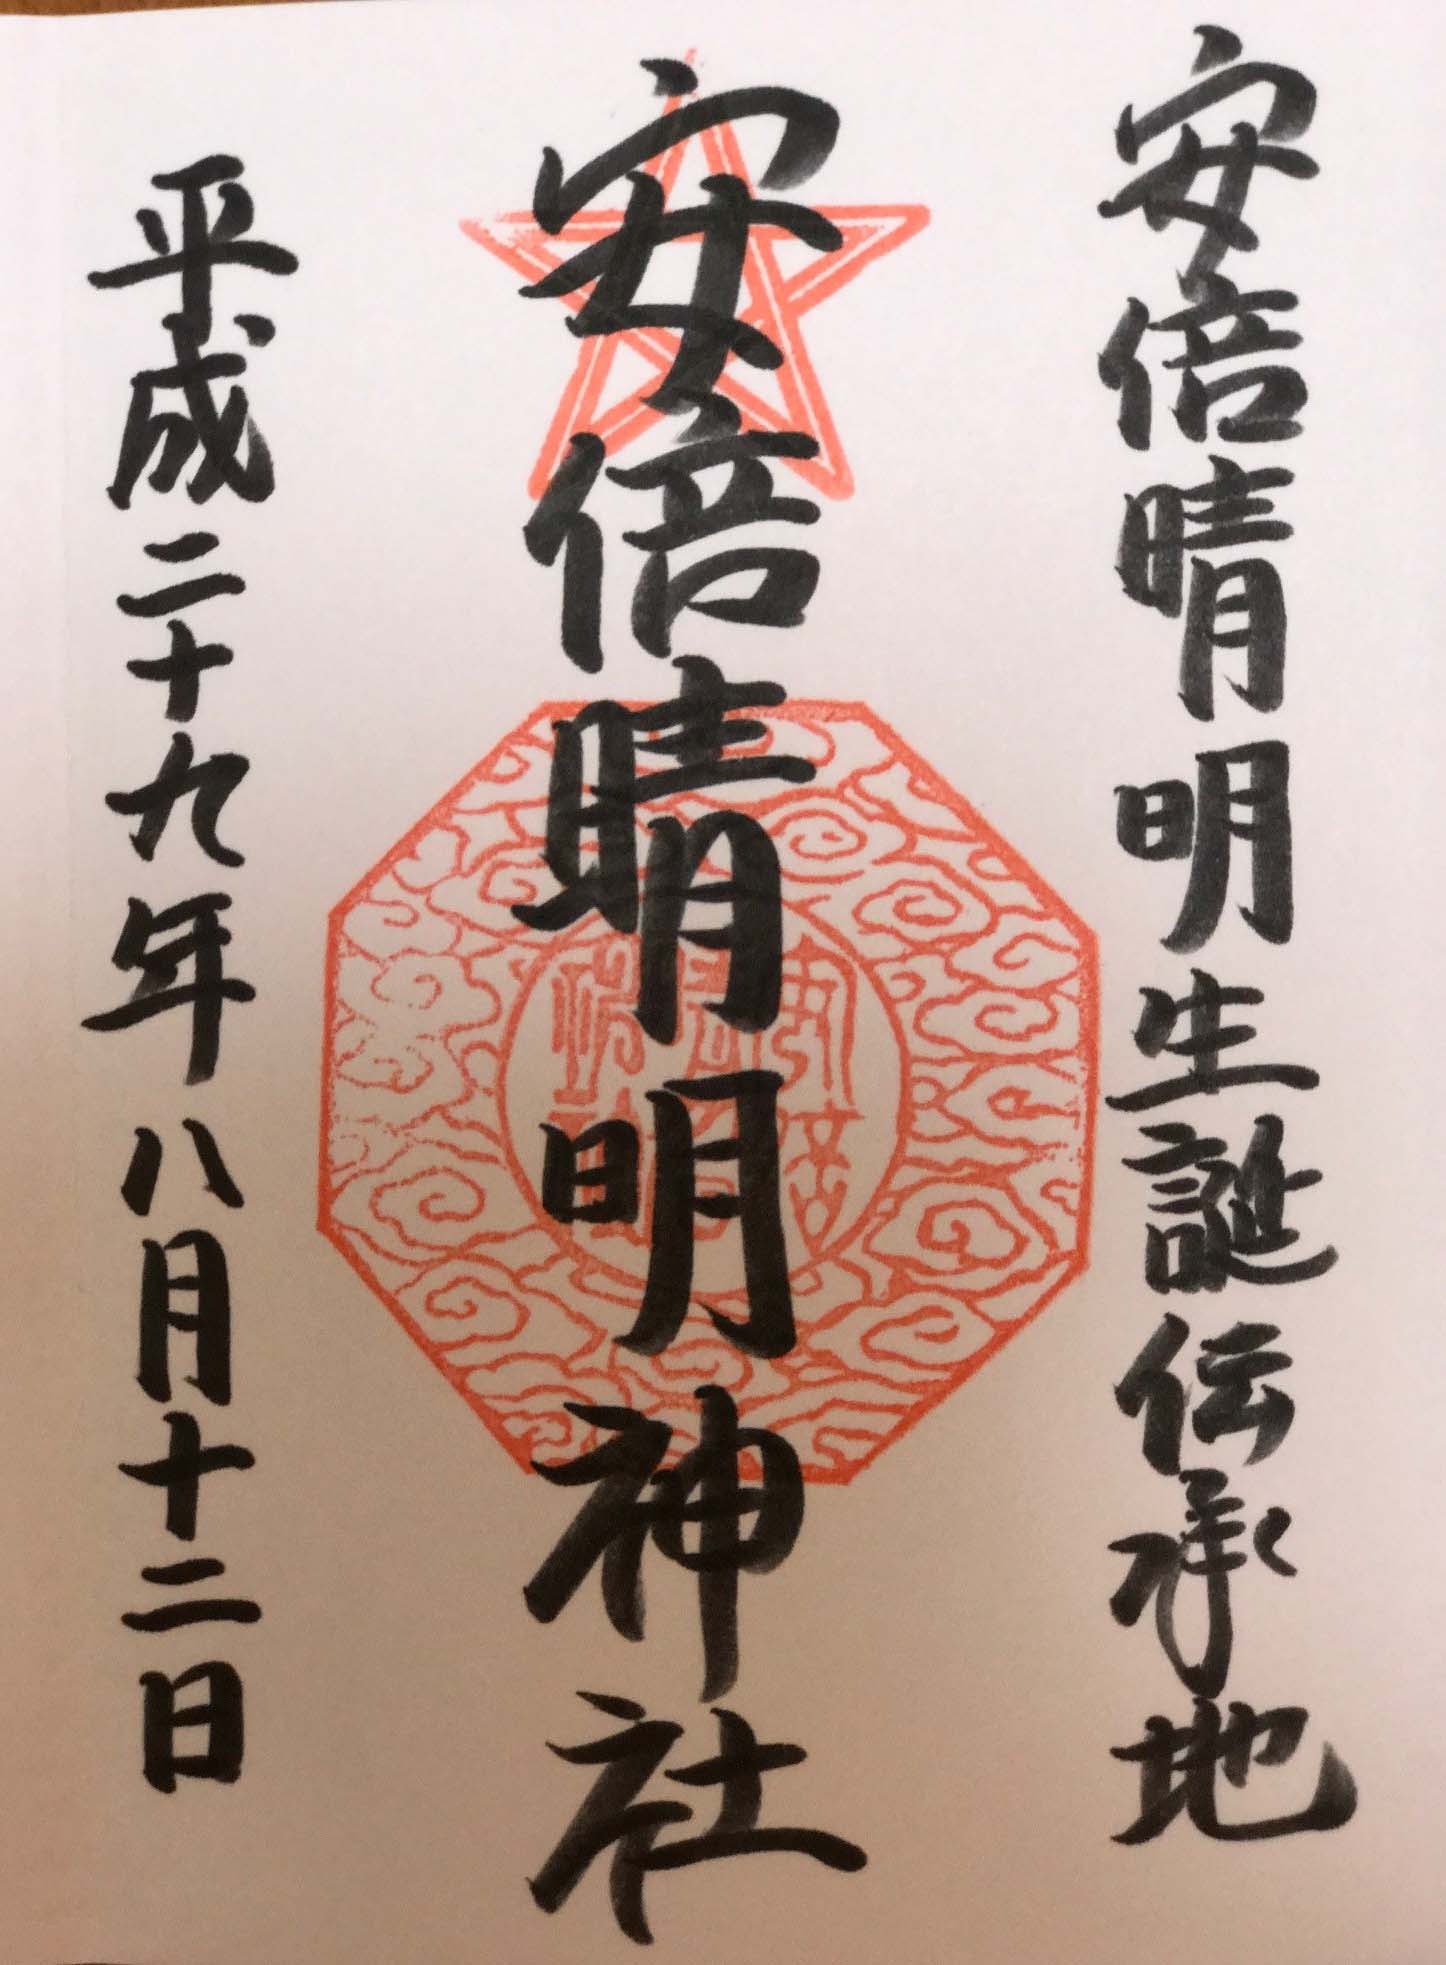 安倍晴明生誕伝承地
安倍晴明神社
平成二十九年八月十二日